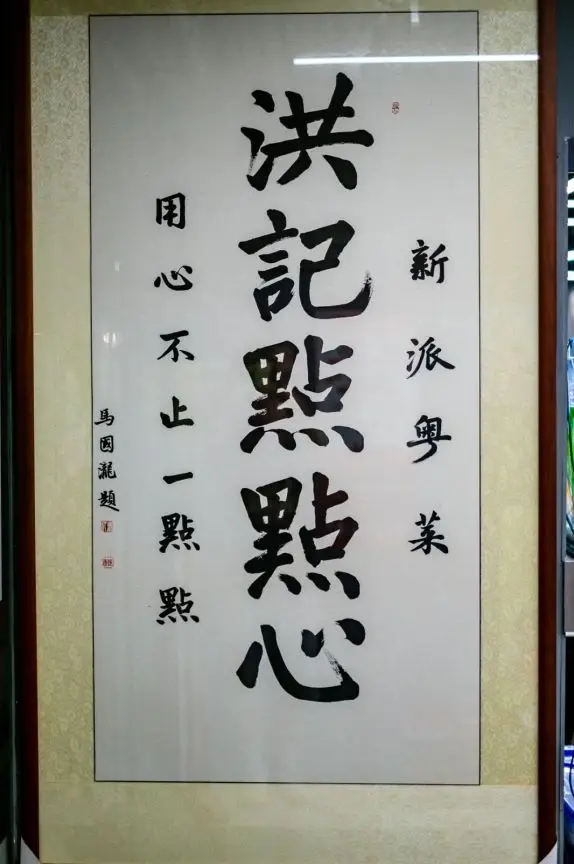 新派粤菜
洪記點點心
用心不止一點點
馬國瀧題